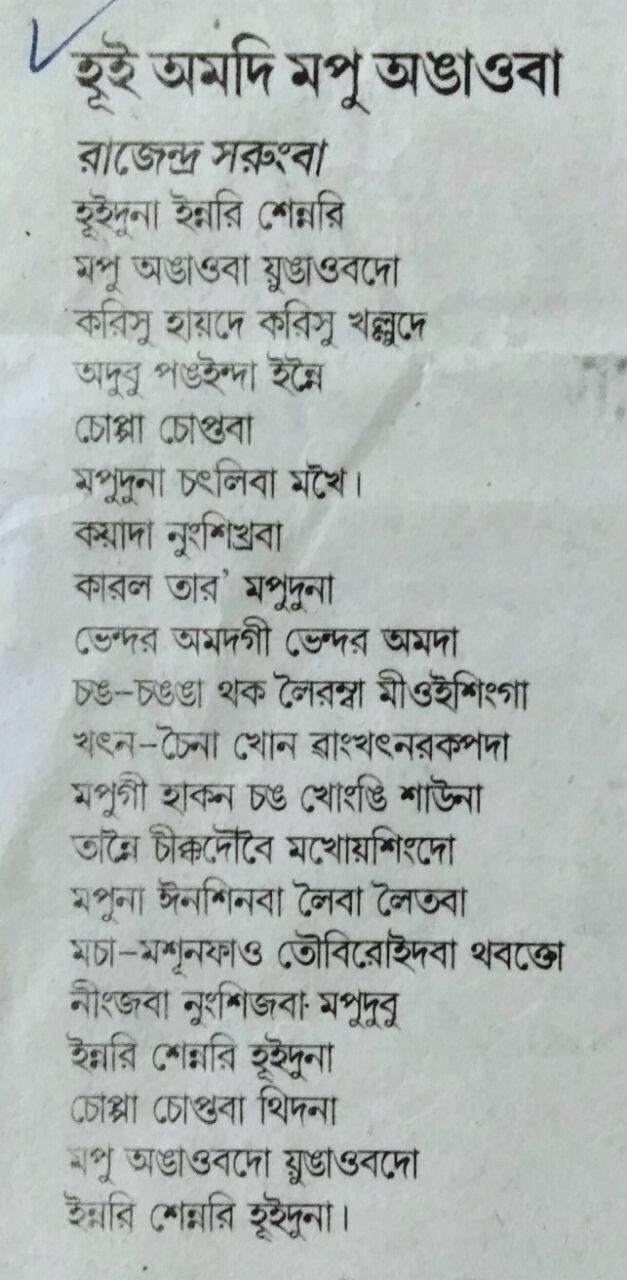 হূই অমদি মপু অঙাওবা
রাজেন্দ্র সরুংবা
হূইদুনা ইন্নরি শেন্নরি
মপু অঙাওবা য়ুঙাওবদো
করিসু হায়দে করিসু খল্লুদে
অদুবু পঙইন্দা ইন্নৈ
চোপ্পা চোপ্তবা
মপুদুনা চৎলিবা মখৈ।
কয়াদা নুংশিখ্রবা
কারল তার’ মপুদুনা
ভেন্দর অমদগী ভেন্দর অমদা
চঙ-চঙঙা থক লৈরম্বা মীওইশিংগা
খৎন-চৈনা খোন ৱাংখৎনরকপদা
মপুগী হাকন চঙ খোংঙি শাউনা
তান্নৈ চীক্কদৌবৈ মখোয়শিংদো
মপুনা ঈনশিনবা লৈবা লৈতবা
মচা-মশূনফাও তৌবিরোইদবা থবক্তো
নীংজবা নুংশিজবা মপুদুবু
ইন্নরি শেন্নরি হূইদুনা
চোপ্পা চোপ্তবা থিদনা
মপু অঙাওবদো য়ুঙাওবদো
ইন্নরি শেন্নরি হূইদুনা।